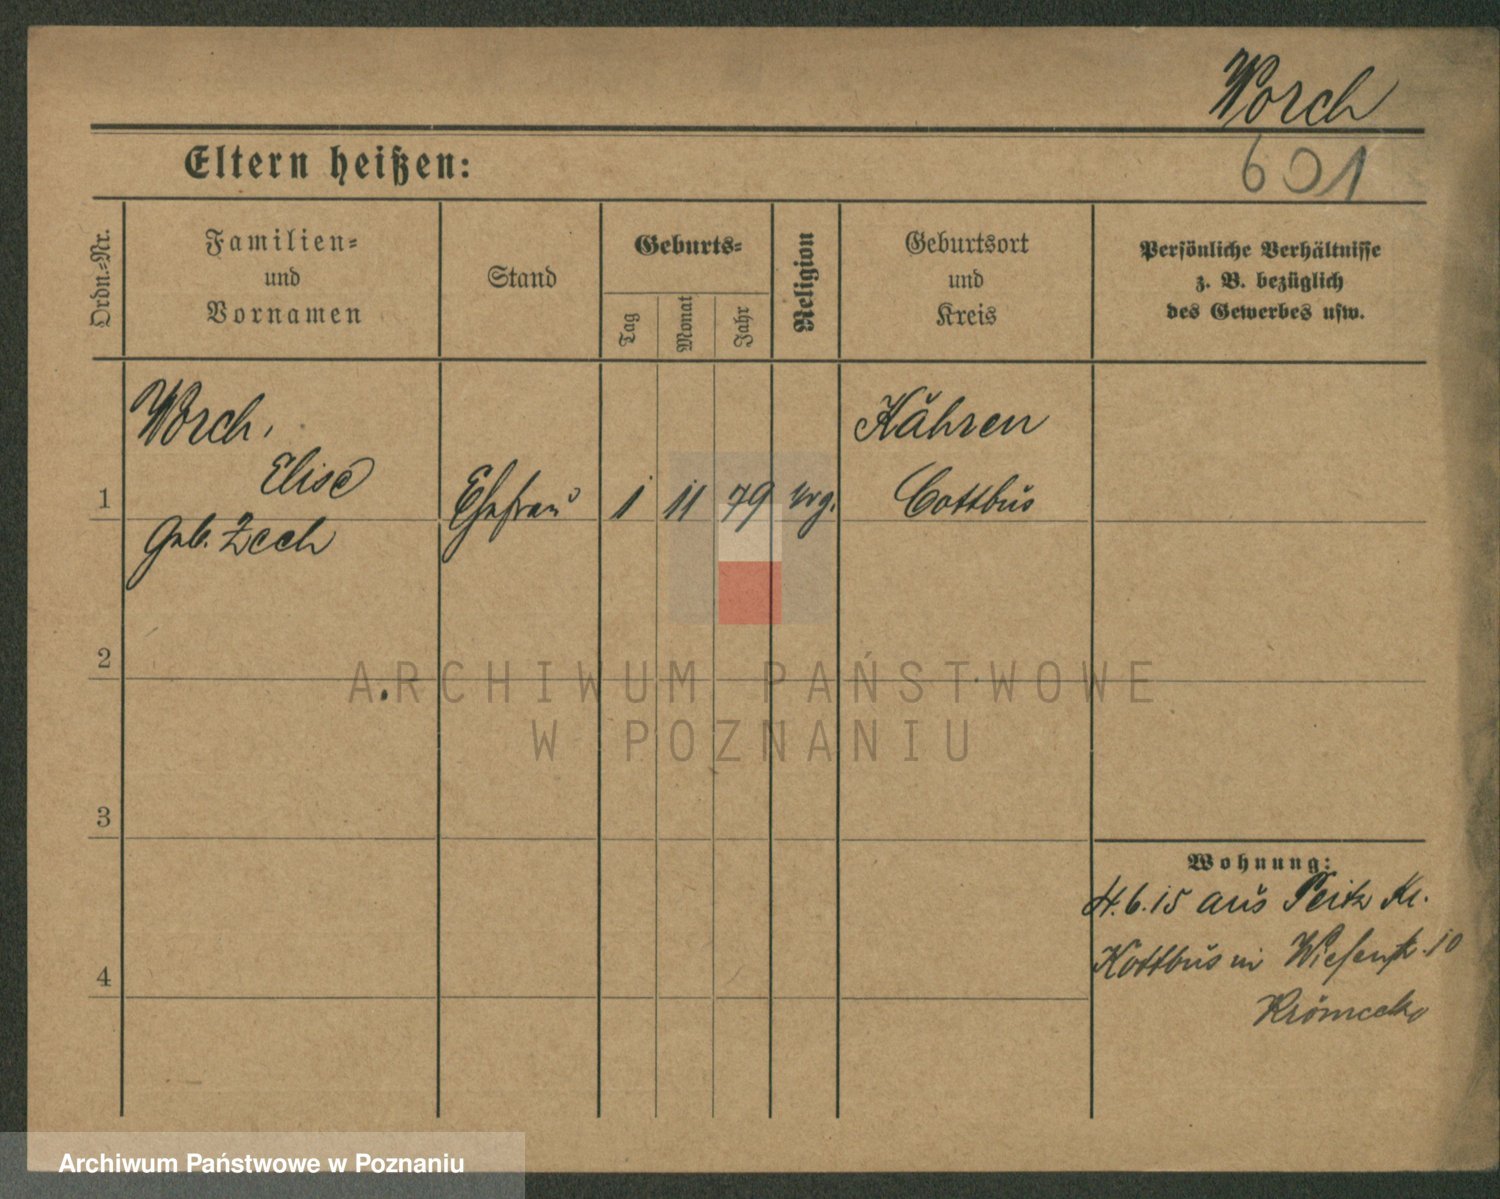 Worch
601
Eltern heißen:
Ordn.=Nr.
Familien=
und
Vornamen
Stand
Geburts=
Tag
Monat
Jahr
Religion
Geburtsort
und
Kreis
Persönliche Verhältnisse
z. B. bezüglich
des Gewerbes usw.
Worch,
Elise
geb. Zech
1
Ehefrau
1 11 79
evg.
Kähren
Cottbus
2
3
4
Wohnung:
4.6.15 aus Peitz Kr.
Kottbus in Wiesenstr. 10
ARCHIWUM PAŃSTWOWE
W POZNANIU
Archiwum Państwowe w Poznaniu